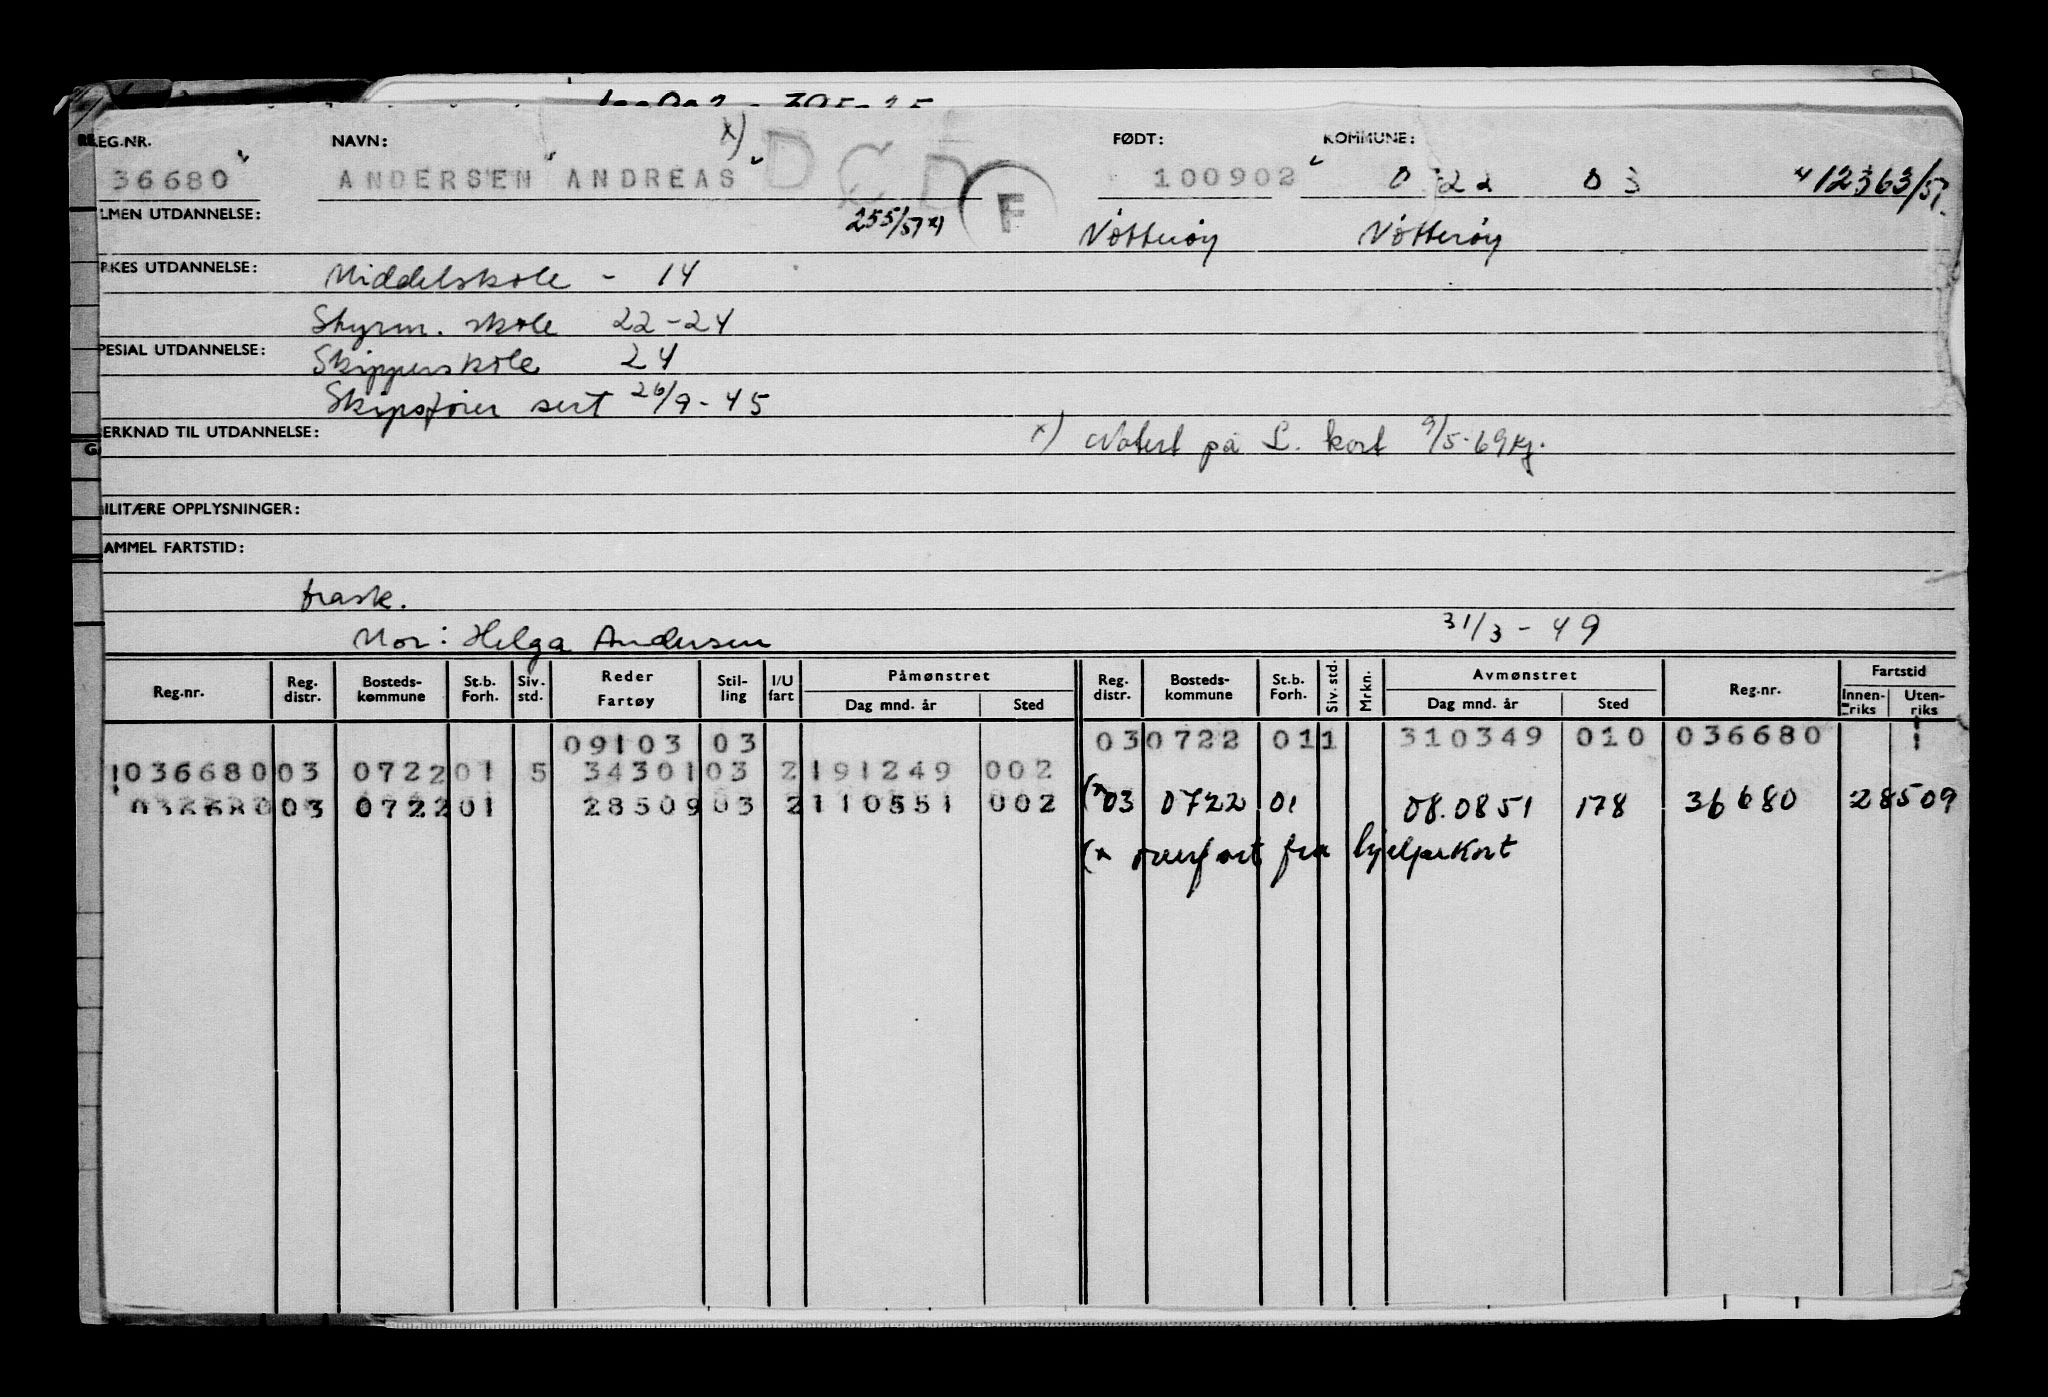 REG.NR. NAVN: x) FØDT: KOMMUNE:
36680 " ANDERSEN " ANDREAS " DCD F 100902 " 0722 03 " 12363/57.
LMEN UTDANNELSE: 255/57 x) Nøtterøy Nøtterøy
RKES UTDANNELSE: Middelskole - 14
Styrm. skole 22-24
PESIAL UTDANNELSE: Skipperskole 24
Skipsfører sert 26/9-45
ERKNAD TIL UTDANNELSE: x) Notert på S. kort 9/5-69 Kj.
ILITÆRE OPPLYSNINGER:
AMMEL FARTSTID:
frask.
Mor: Helga Andersen 31/3-49
Reg.nr. Reg. distr. Bosteds-kommune St.b. Forh. Siv. std. Reder Fartøy Stil-ling I/U fart Påmønstret Dag mnd. år Sted Reg. distr. Bosteds-kommune St.b. Forh. Siv. std. Mrkn. Avmønstret Dag mnd. år Sted Reg.nr. Fartstid Innen-riks Uten-riks
09103 03 03 0722 01 1 310349 010 036680
036680 03 0722 01 5 34301 03 2 191249 002
036680 03 0722 01 28509 03 2 110551 002 (x 03 0722 01 08.0851 178 36680 28509
(x overført fra hjelpekort